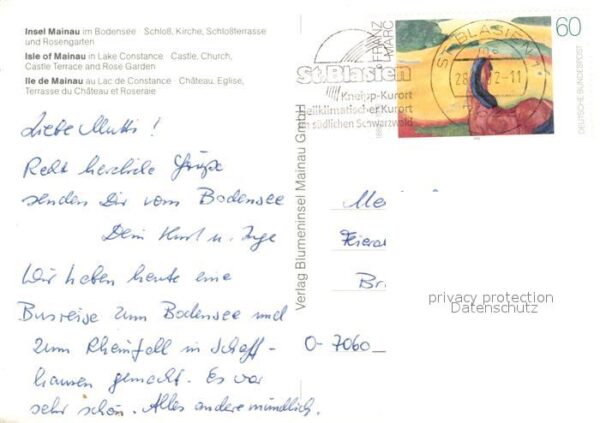 Insel Mainau im Bodensee Schloß, Kirche, Schloßterrasse
und Rosengarten
Isle of Mainau in Lake Constance Castle, Church,
Castle Terrace and Rose Garden
Ile de Mainau au Lac de Constance Château, Eglise,
Terrasse du Château et Roseraie
Liebe Mutti!
Recht herzliche Grüße
senden Dir vom Bodensee
Dein Kurt u. Inge
Wir haben heute eine
Busreise zum Bodensee und
zum Rheinfall in Schaff-
hausen gemacht. Es war
sehr schön. Alles andere mündlich.
Verlag Blumeninsel Mainau GmbH
St. Blasien
Kneipp-Kurort
heilklimatischer Kurort
im südlichen Schwarzwald
ST. BLASIEN 1
FRANZ
MARC
60
DEUTSCHE BUNDESPOST
O-7060
privacy protection
Datenschutz